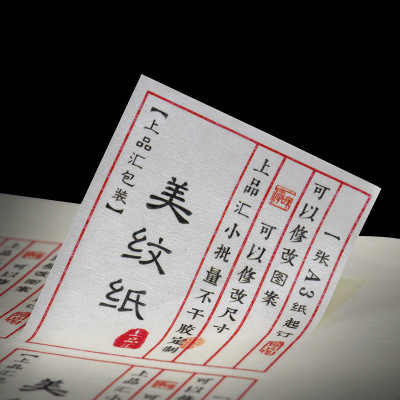 【上品汇包装】
美纹纸
上品汇
上品汇小批量不干胶定制
可以修改尺寸
可以修改图案
一张A3纸起订